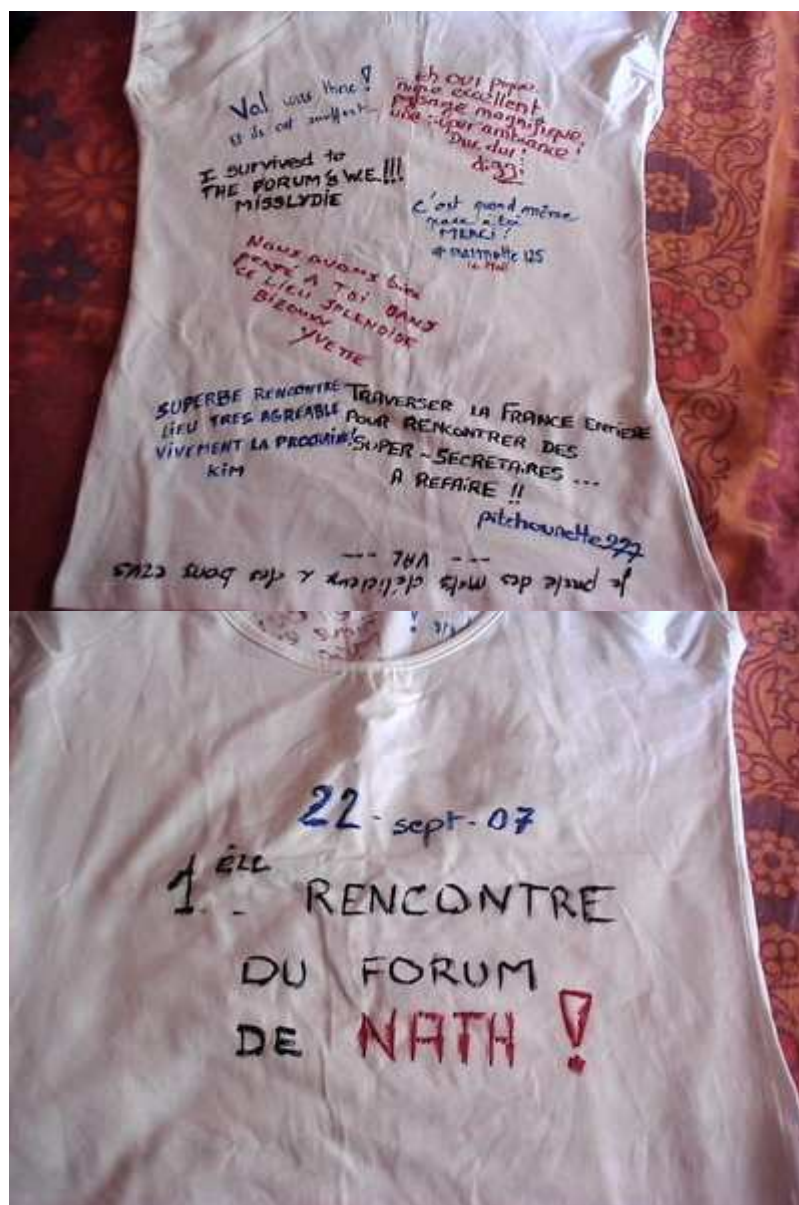 Val was there !
et ils ont souffert...
Eh oui pique
nique excellent
paysage magnifique,
une super ambiance !
Dur, dur !
I survived to
THE FORUM'S W.E !!!
MISSLYDIE
c'est quand même
grace à toi
MERCI !
marmotte 125
Nous avons bien
pensé A TOI DANS
CE LIEU SPLENDIDE
BIZOUXX
YVETTE
SUPERBE RENCONTRE
LIEU TRES AGREABLE
VIVEMENT LA PROCHAINE!
KIM
TRAVERSER LA FRANCE ENTIERE
POUR RENCONTRER DES
SUPER-SECRETAIRES ...
A REFAIRE !!
pitchounette277
Je parle des mets délicieux & des bons crus
--- VAL ---
22-sept-07
1ère RENCONTRE
DU FORUM
DE NATH !